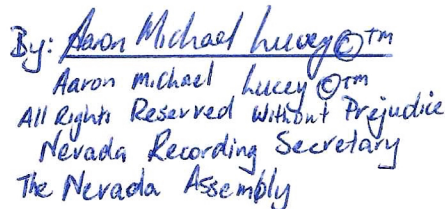 By: Aaron Michael Lucey©™
Aaron Michael Lucey©™
All Rights Reserved Without Prejudice
Nevada Recording Secretary
The Nevada Assembly